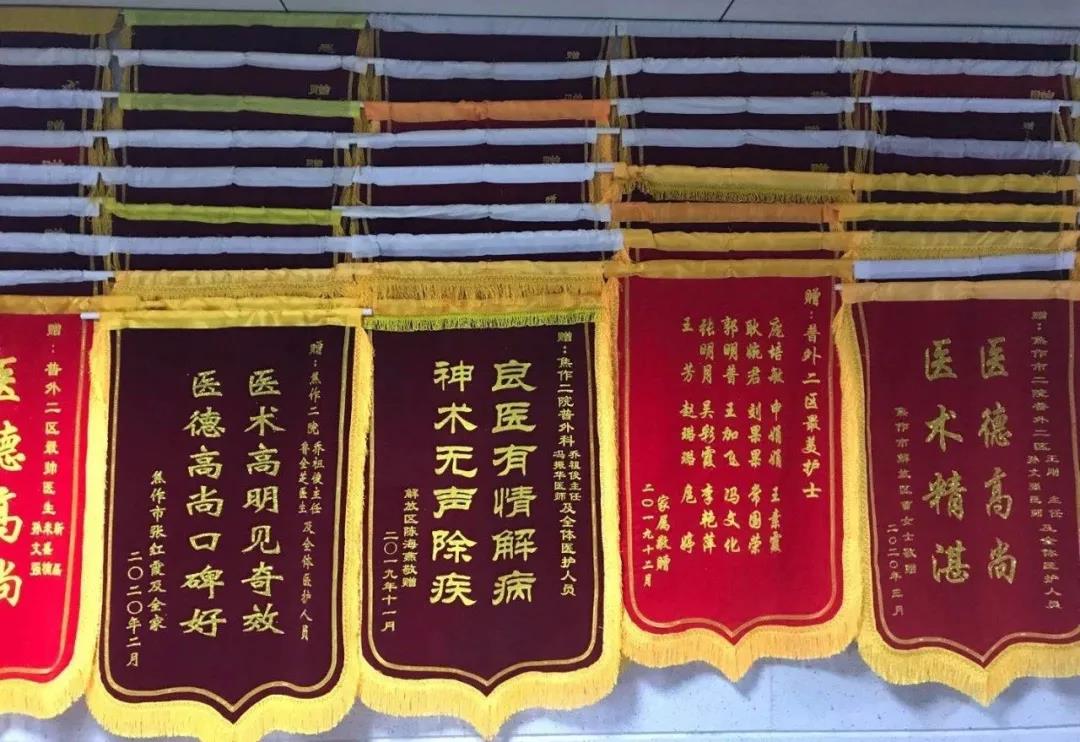 赠：普外二区最帅医生
医德高尚
赠：焦作二院 乔祖俊主任 鲁金芝医生 及全体医护人员
医术高明见奇效
医德高尚口碑好
焦作市张红霞及全家
二〇二〇年二月
赠：焦作二院普外科 乔祖俊主任 冯振华医师 及全体医护人员
良医有情解病
神术无声除疾
解放区陈海燕敬赠
二〇一九年十一月
赠：普外二区最美护士
庞培敏 申娟娟 王素霞
耿婉君 刘果果 常国荣
郭明普 王加飞 冯文化
张明月 吴彩霞 李艳萍
王芳 赵璐璐 庞婷
家属敬赠
二〇一九十二月
赠：焦作市二院普外二区 王刚 主任 孙文强医师 及全体医护人员
医德高尚
医术精湛
焦作市解放区曹女士敬赠
二〇二〇年三月